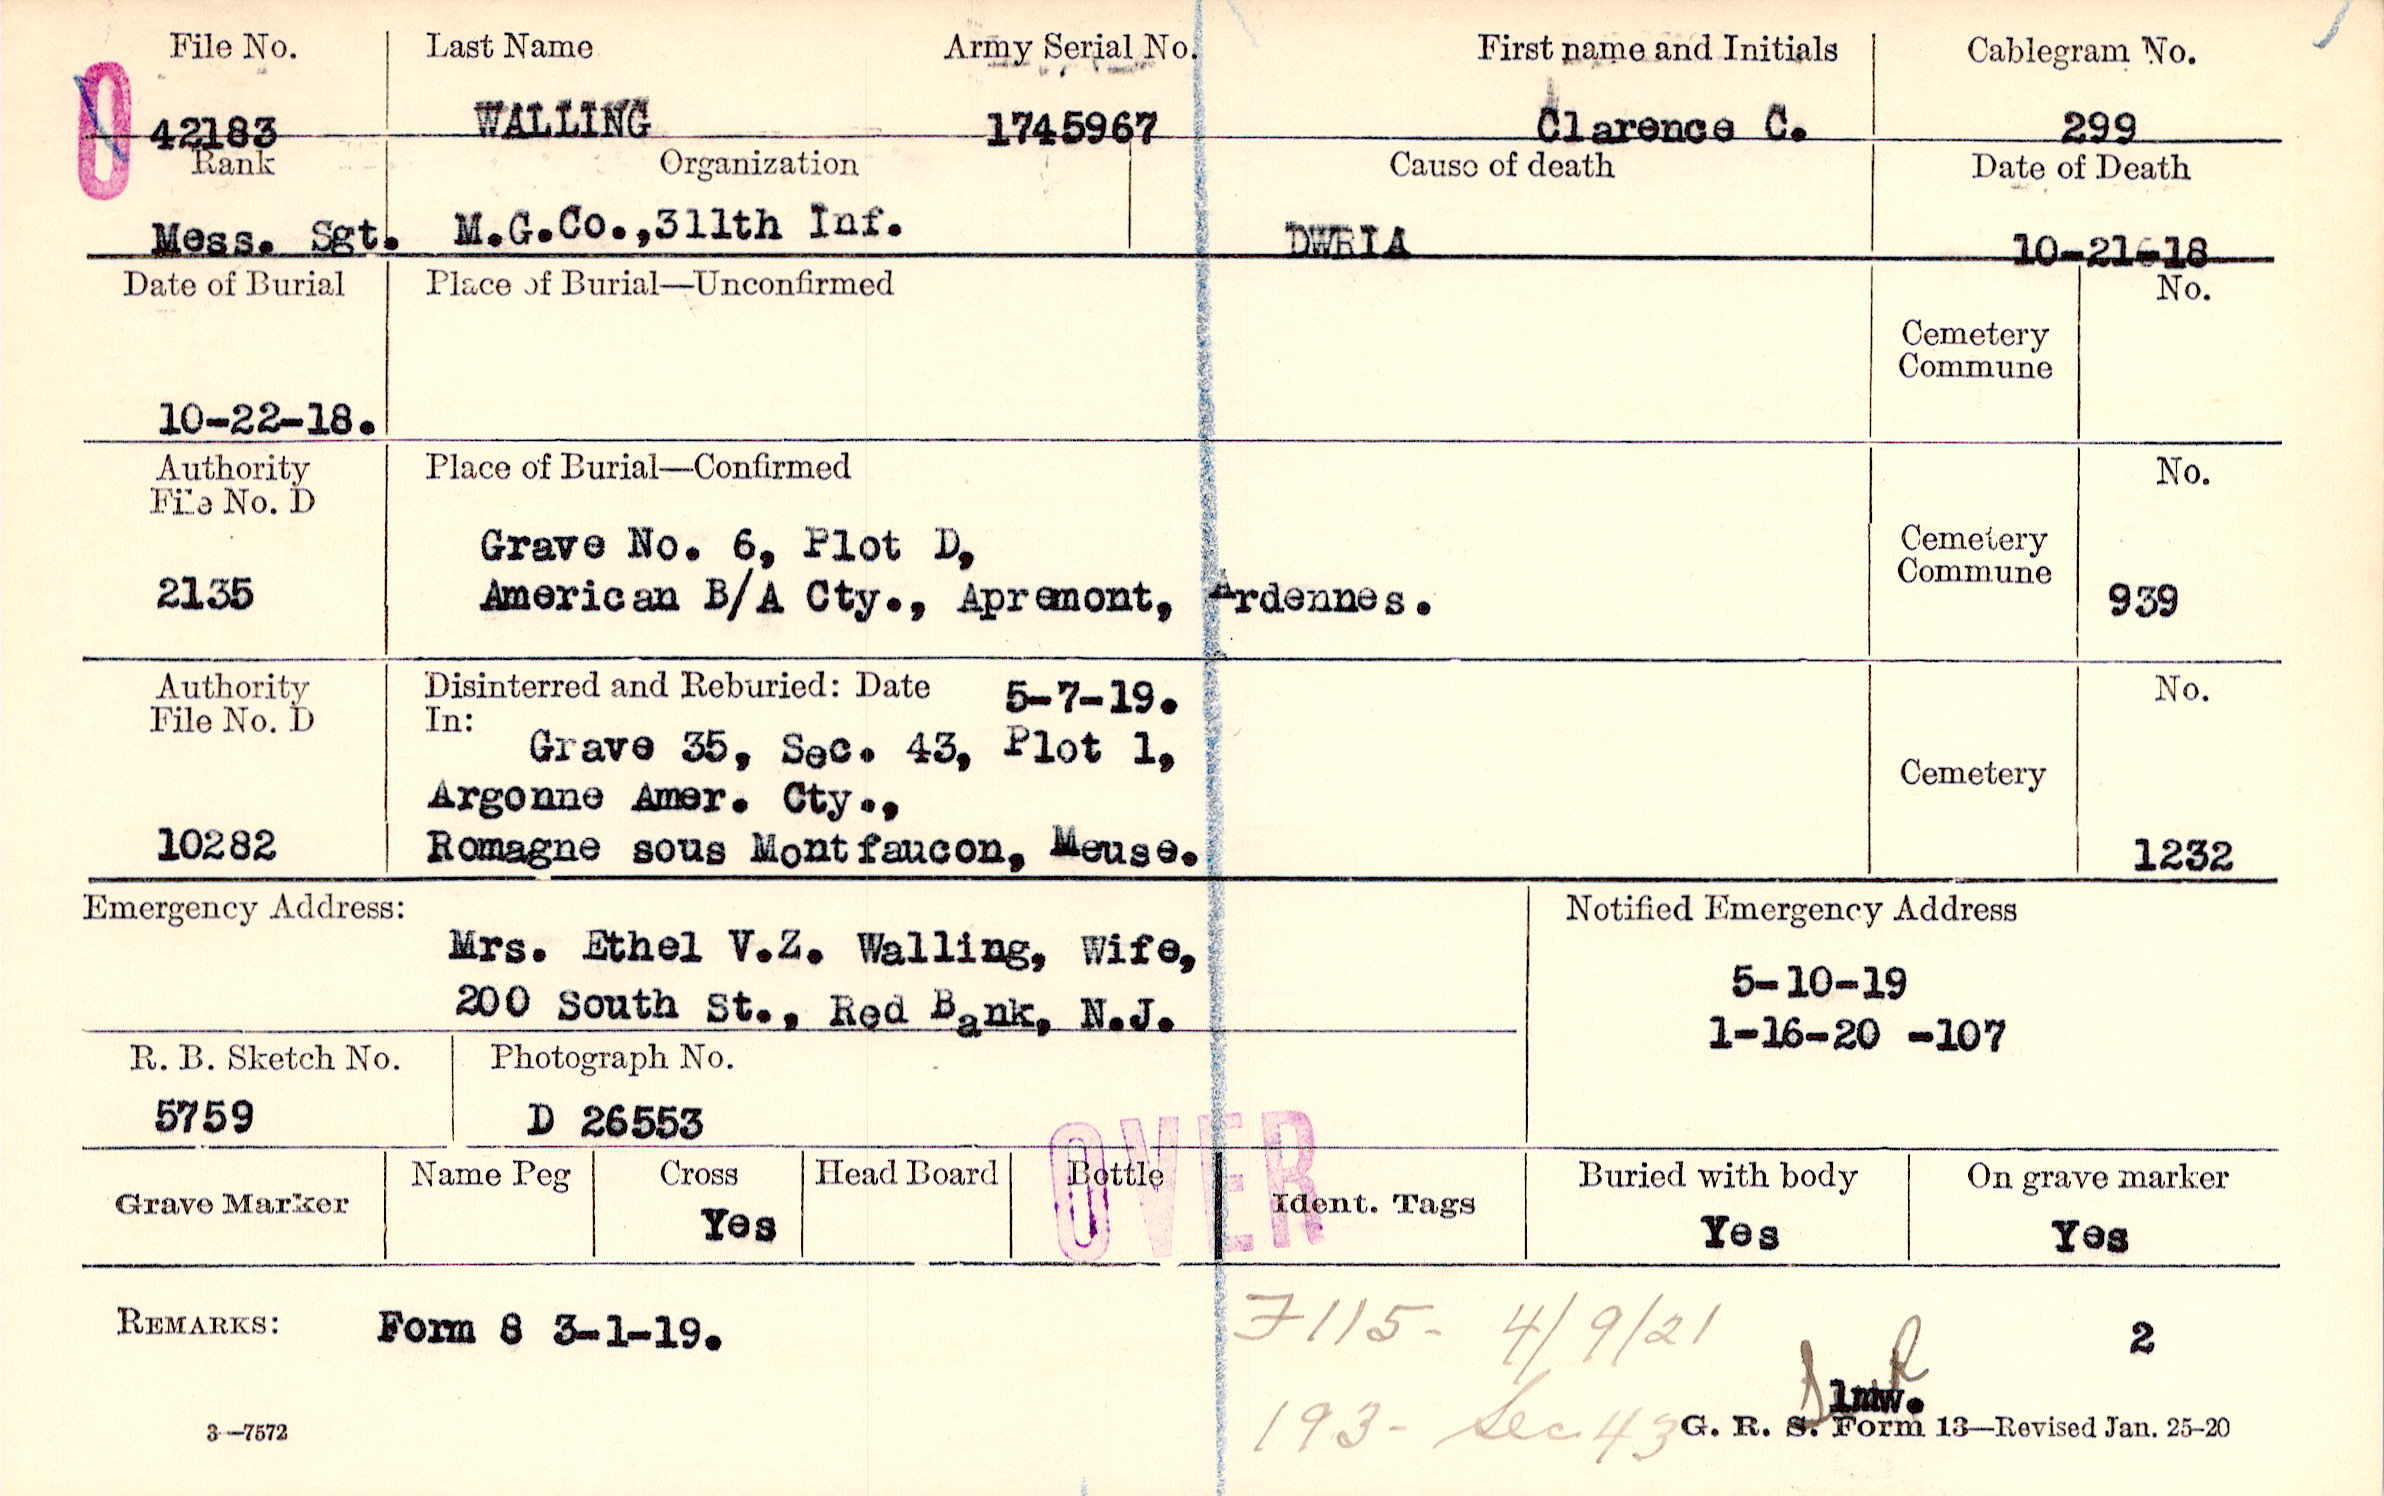 File No. Last Name Army Serial No. First name and Initials Cablegram No.
42183 WALLING 1745967 Clarence C. 299
Rank Organization Cause of death Date of Death
Mess. Sgt. M.G.Co.,311th Inf. DWRIA 10-21-18
Date of Burial Place of Burial—Unconfirmed No.
Cemetery
Commune
10-22-18.
Authority Place of Burial—Confirmed No.
File No. D
Grave No. 6, Plot D, Cemetery
Commune
2135 American B/A Cty., Apremont, Ardennes. 939
Authority Disinterred and Reburied: Date 5-7-19. No.
File No. D In:
Grave 35, Sec. 43, Plot 1,
Cemetery
Argonne Amer. Cty.,
10282 Romagne sous Montfaucon, Meuse. 1232
Emergency Address: Notified Emergency Address
Mrs. Ethel V.Z. Walling, Wife,
5-10-19
200 South St., Red Bank, N.J.
1-16-20 -107
R. B. Sketch No. Photograph No.
5759 D 26553
OVER
Name Peg Cross Head Board Bottle Buried with body On grave marker
Grave Marker Ident. Tags
Yes Yes Yes
REMARKS: Form 8 3-1-19. 2
F115- 4/9/21
lmw.
193- Sec 43
3—7572 G. R. S. Form 13—Revised Jan. 25-20